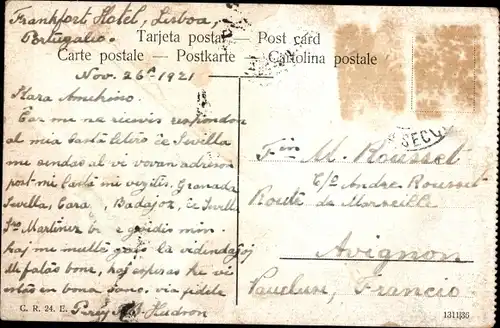 Frankfort Hotel, Lisboa,
Portugalio.
Tarjeta postal — Post card
Carte postale — Postkarte — Cartolina postale
Nov. 26ª 1921
Kara Amikino.
Ĉar mi ne ricevis respondon
al mia lasta letero ĉe Sevilla
mi sendas al vi novan adreson
post mi lasta mi vizitis Granada
Sevilla, Badajoz, ĉe Sevilla
Sro Martinez gvidis min
kaj me multe la vidindaĵoj
Mi fartas bone, kaj esperas ke vi
estas en bona sano. via fidele
Percy Hudson
Fino M. Rousset
C/o Andre Rousset
Route de Marseille
Avignon
Vaucluse, Francio.
C. R. 24. E.
131136